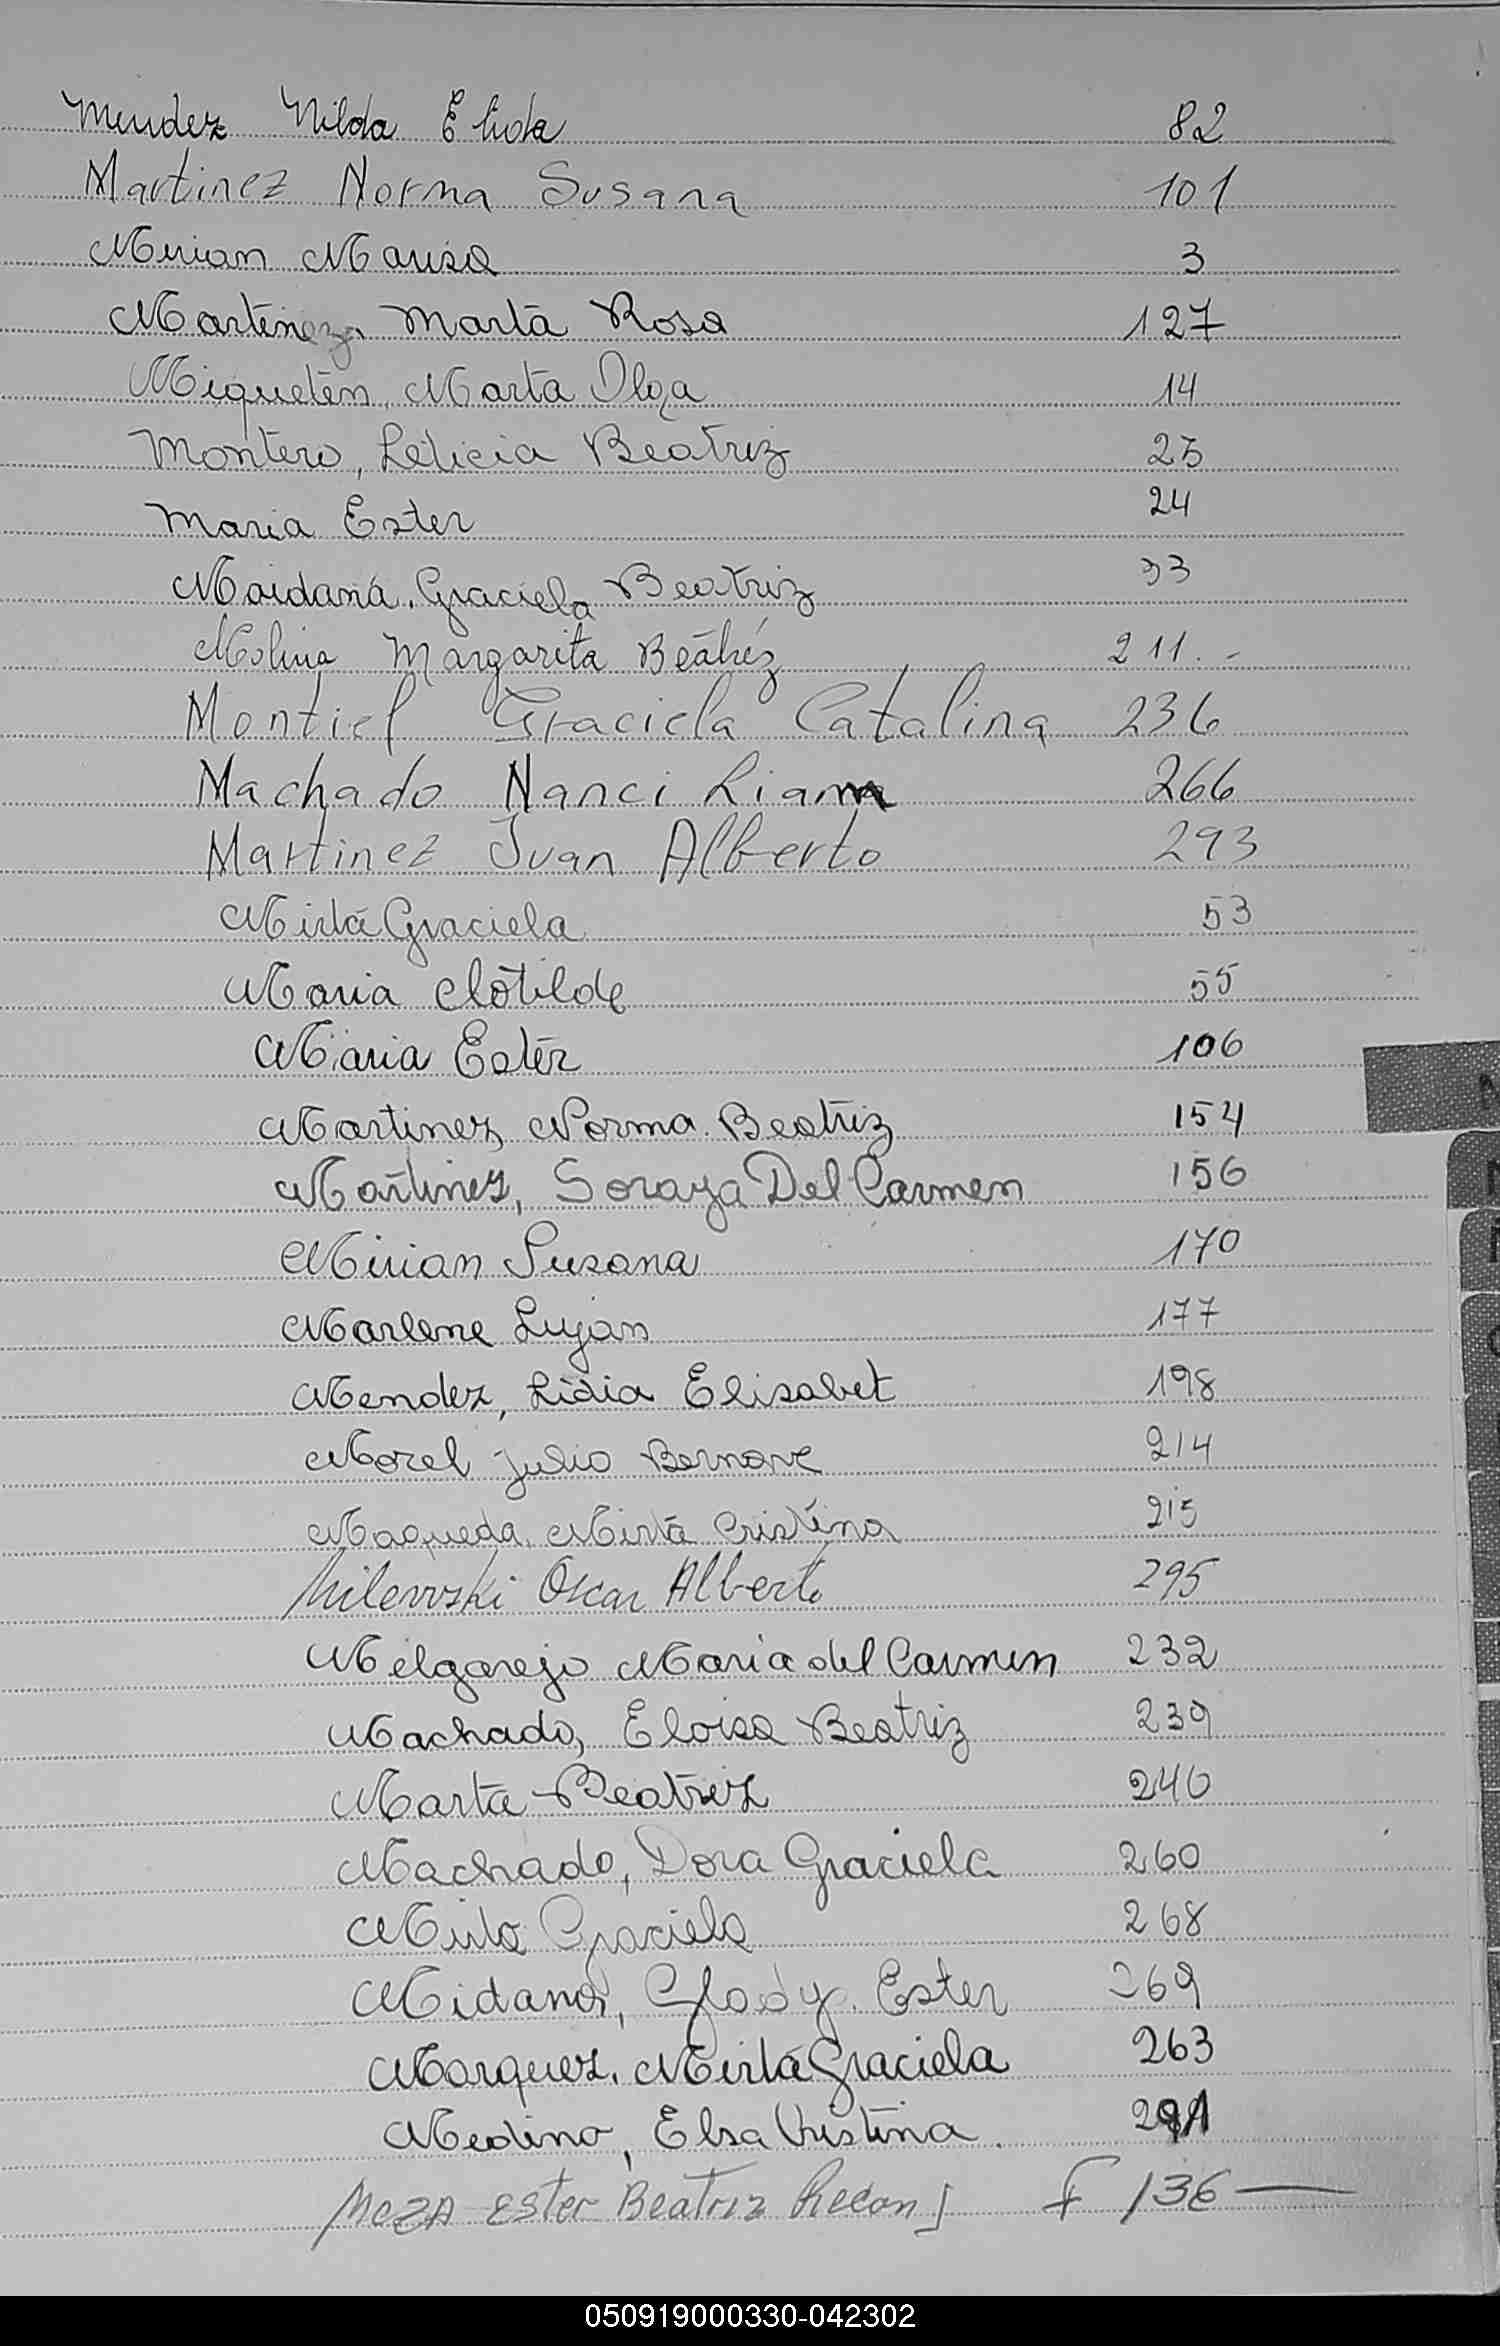 Mendez Nilda Elida 82
Martinez Norma Susana 101
Mirian Marisa 3
Martinez, Marta Rosa 127
Miqueten, Marta Olga 14
Montero, Leticia Beatriz 23
Maria Ester 24
Maidana, Graciela Beatriz 33
Molina Margarita Beatriz 211.-
Montiel Graciela Catalina 236
Machado Nanci Liam 266
Martinez Juan Alberto 293
Mirta Graciela 53
Maria Clotilde 55
Maria Ester 106
Martinez, Norma Beatriz 154
Martinez, Soraya Del Carmen 156
Mirian Susana 170
Marlene Lujan 177
Mendez, Lidia Elisabet 198
Morel Julio 214
Maqueda, Mirta Cristina 215
Milewski Oscar Alberto 295
Melgarejo Maria del Carmen 232
Machado, Eloisa Beatriz 239
Marta Beatriz 240
Machado, Dora Graciela 260
Mirta Graciela 268
Midana, Glady. Ester 269
Marquez, Mirta Graciela 263
Medina, Elsa Cristina
MEZA Ester Beatriz Recon] F 136 —
050919000330-042302